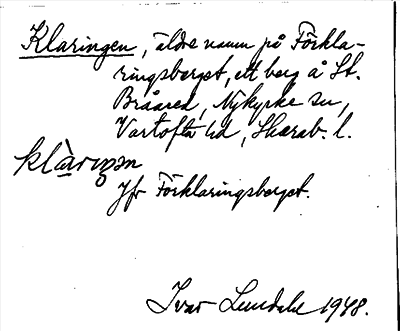 Klaringen, äldre namn på Förkla-
ringsberget, ett berg å St.
Brååred, Nykyrke sn,
Vartofta hd, Skarab. l.
klàriŋən
Jfr Förklaringsberget.
Ivar Lundahl 1948.